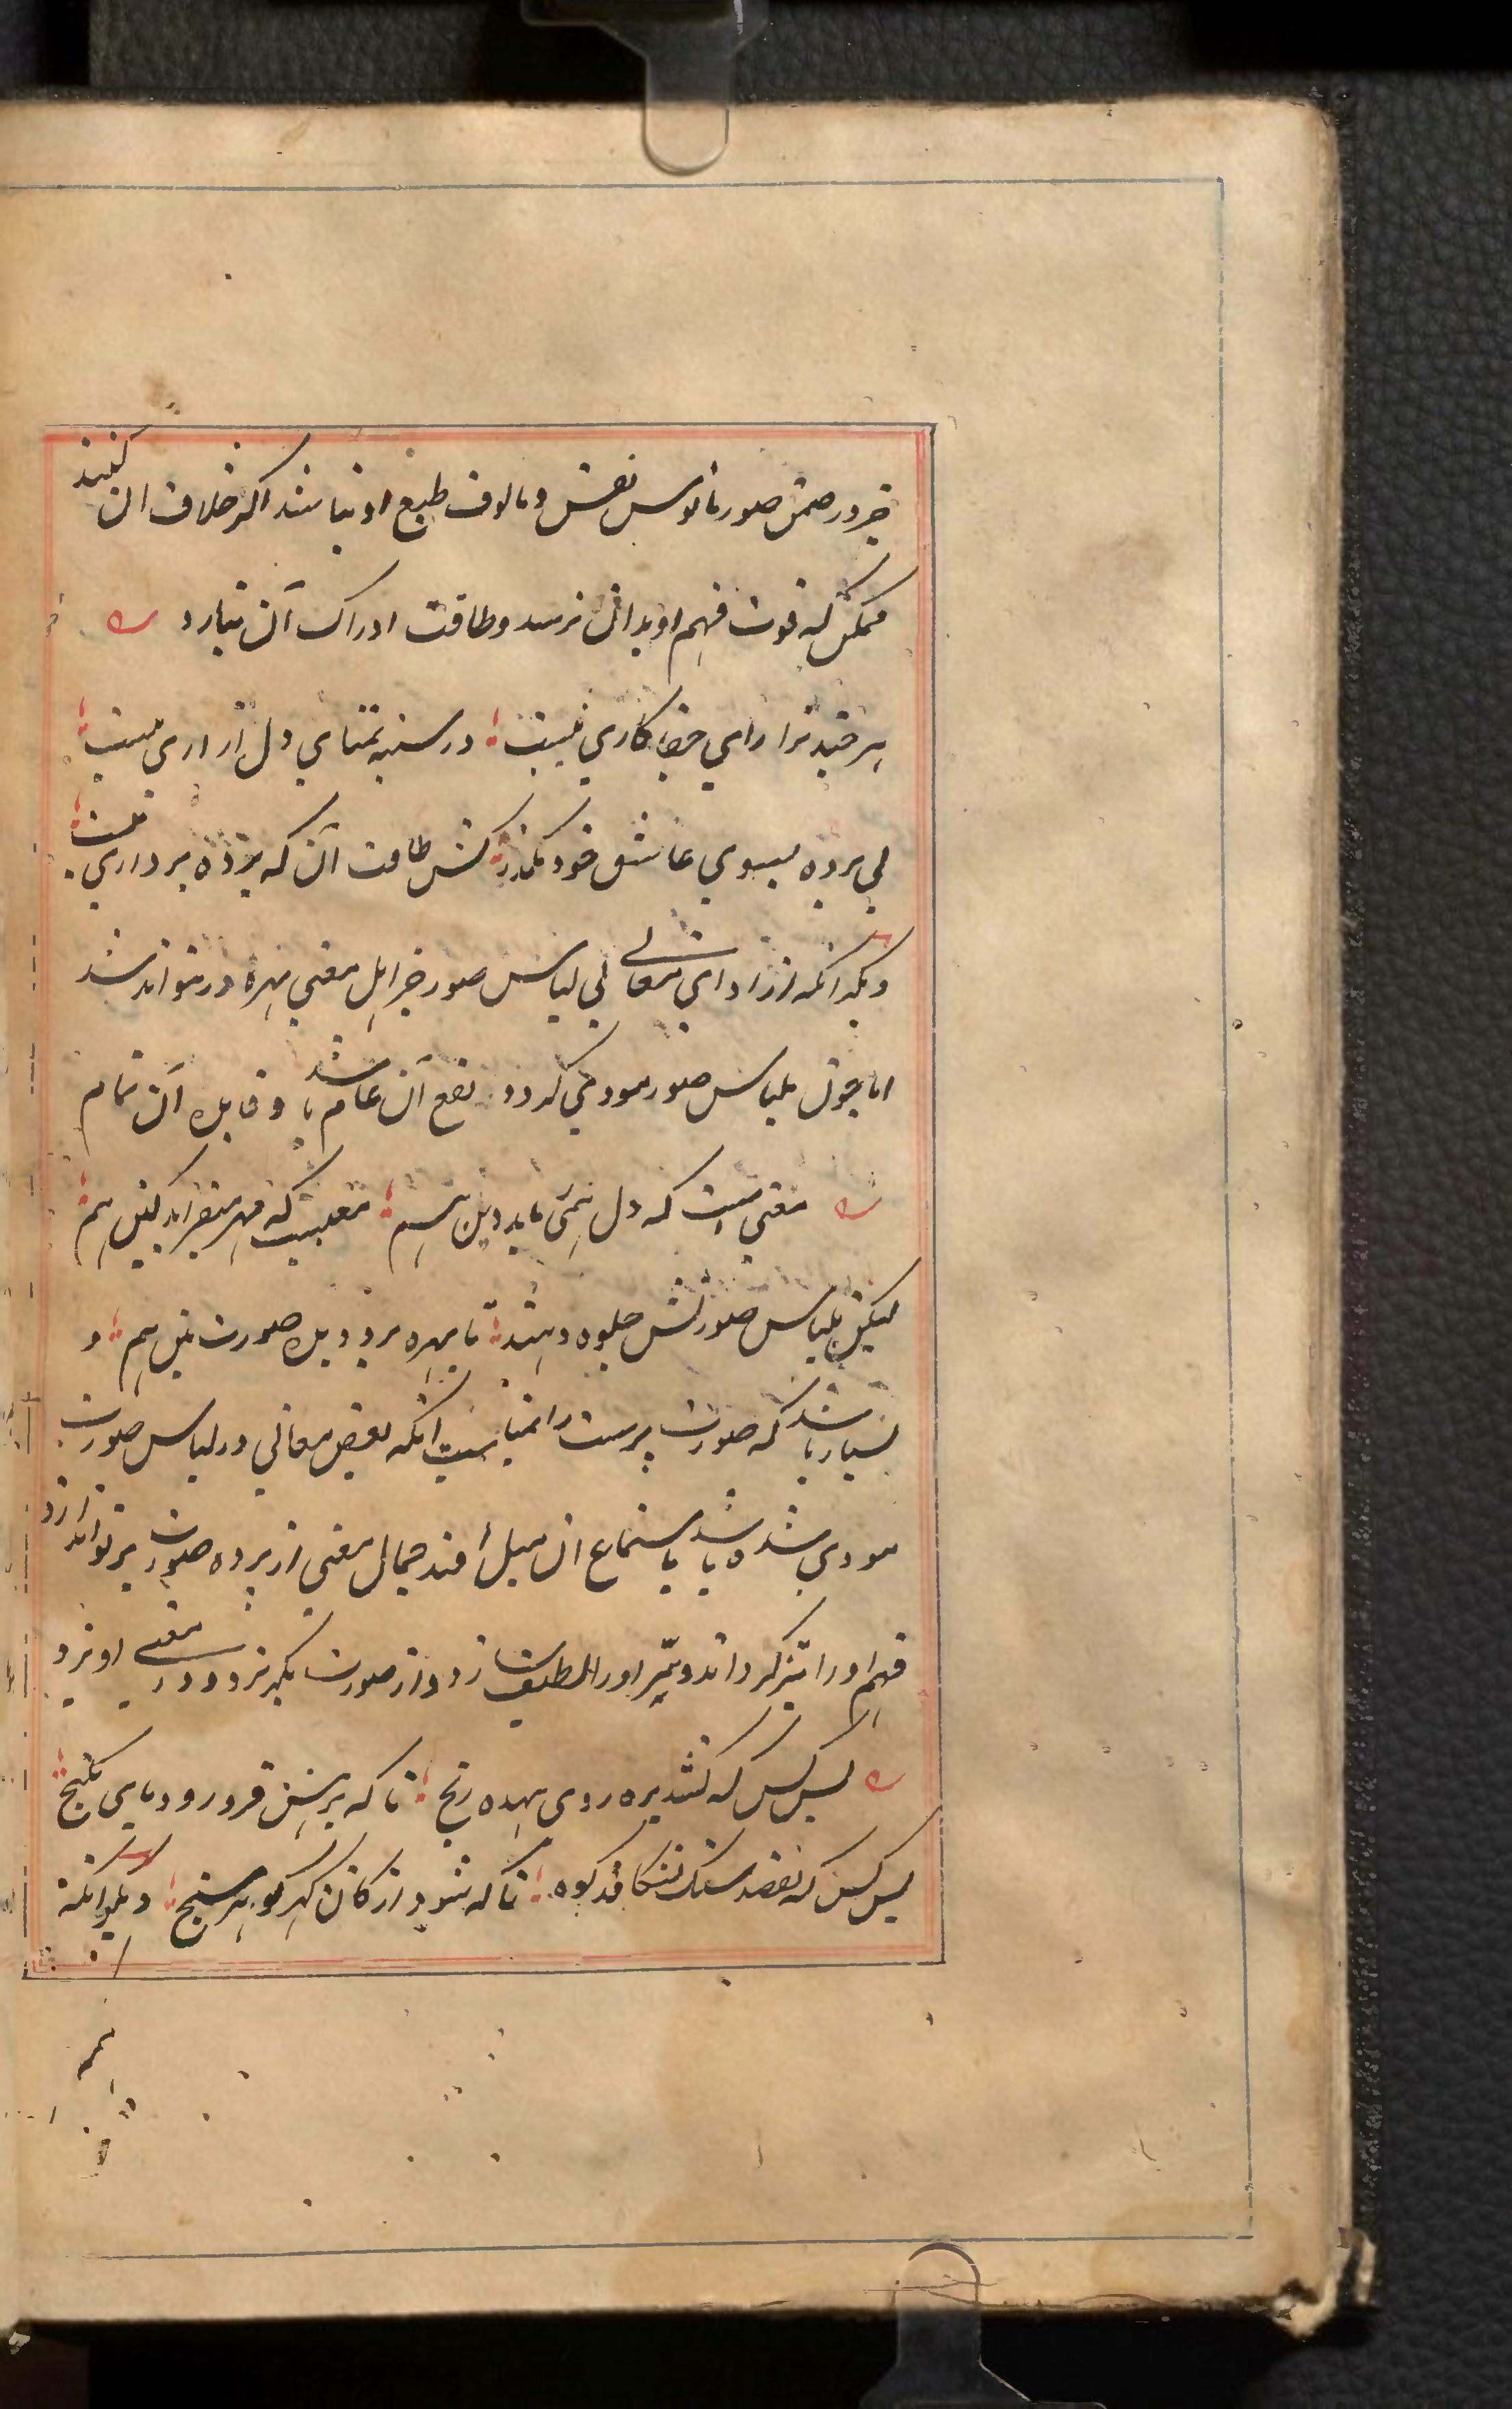 جز در ضمن صور مانوس نفس و مالوف طبع او نباشد اکر خلاف ان کنند
ممکن که قوت فهم او بدان نرسد و طاقت ادراک آن نیارد
هر چند ترا رای جفا کاری نیست در سینه تمنای دل ازاری نیست
بی پرده بسوی عاشق خود مکذر کش طاقت آن که پرده برداری نیست
دیکر انکه از ادای معانی بی لباس صور جز اهل معنی بهره ور نتواند شد
اما چون بلباس صور مودی کردد نفع آن عام باشد و فایده آن تمام
معنیست که دل همی رباید دین هم معنیست که مهر میفزاید کین هم
لیکن بلباس صورتش جلوه دهند تا بهره برد دیده صورت بین هم و
بسیار باشد که صورت پرست را بمناسبت انکه بعض معانی در لباس صورت
مودی شده باشد باستماع ان میل افتد جمال معنی از پرده صورت پرتو اندازد
فهم او را تیز کرداند و سر او را لطیف سازد از صورت بکریزد و در معنی اویزد
بس کس که کشد بره روی بیهده رنج تا که برهش فرو رود پای بکنج
بس کس که بقصد سنک بشکافد کوه تا که شود از کان کهر کوهر سنج دیکر انکه